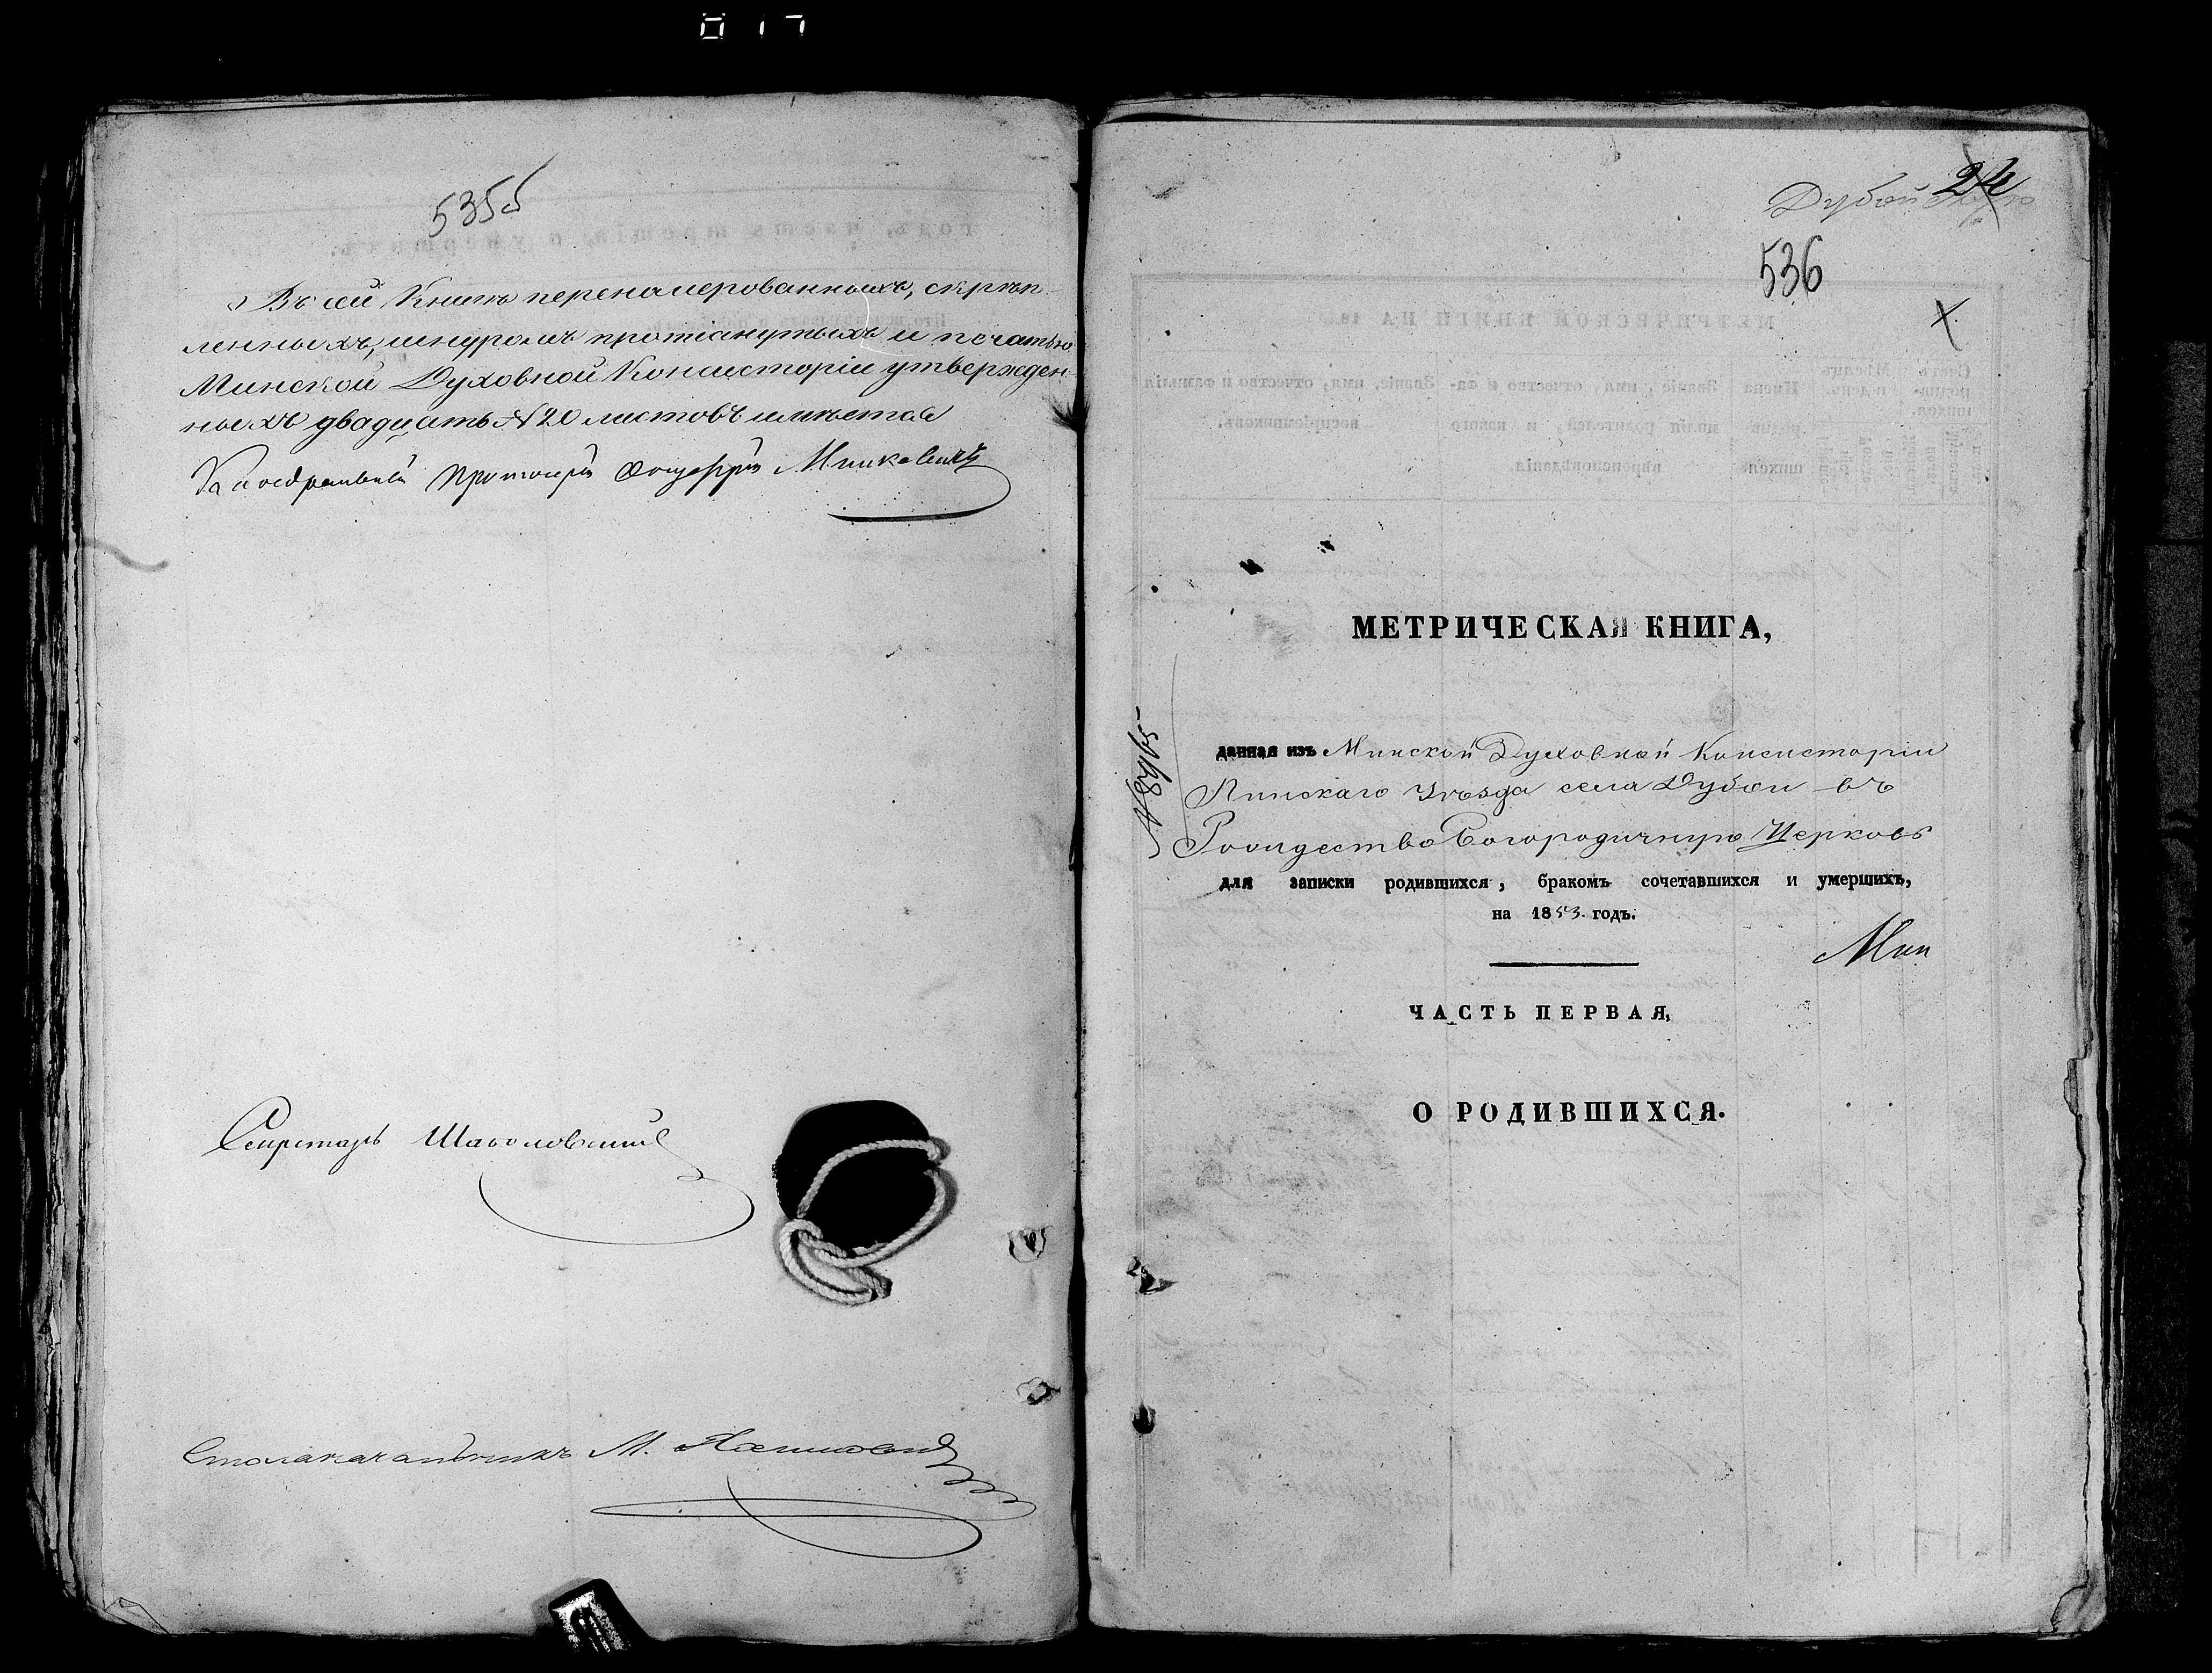 017
535б
Въ сей Книгѣ перенамерованныхъ, скрѣп-
ленныхъ, шнуромъ протянутыхъ и печатью
Минской Духовной Консисторіи утвержден-
ныхъ двадцать №20 листовъ имѣется
Каѳедральный Протоіерей
Секретарь
Столоначальникъ М.
Дубой
24
536
X
МЕТРИЧЕСКАЯ КНИГА,
данная изъ Минской Духовной Консисторіи
Пинскаго Уѣзда села Дубои въ
Рождество Богородичную Церковь
для записки родившихся, бракомъ сочетавшихся и умершихъ,
на 1853. годъ.
Мин
ЧАСТЬ ПЕРВАЯ,
О РОДИВШИХСЯ.